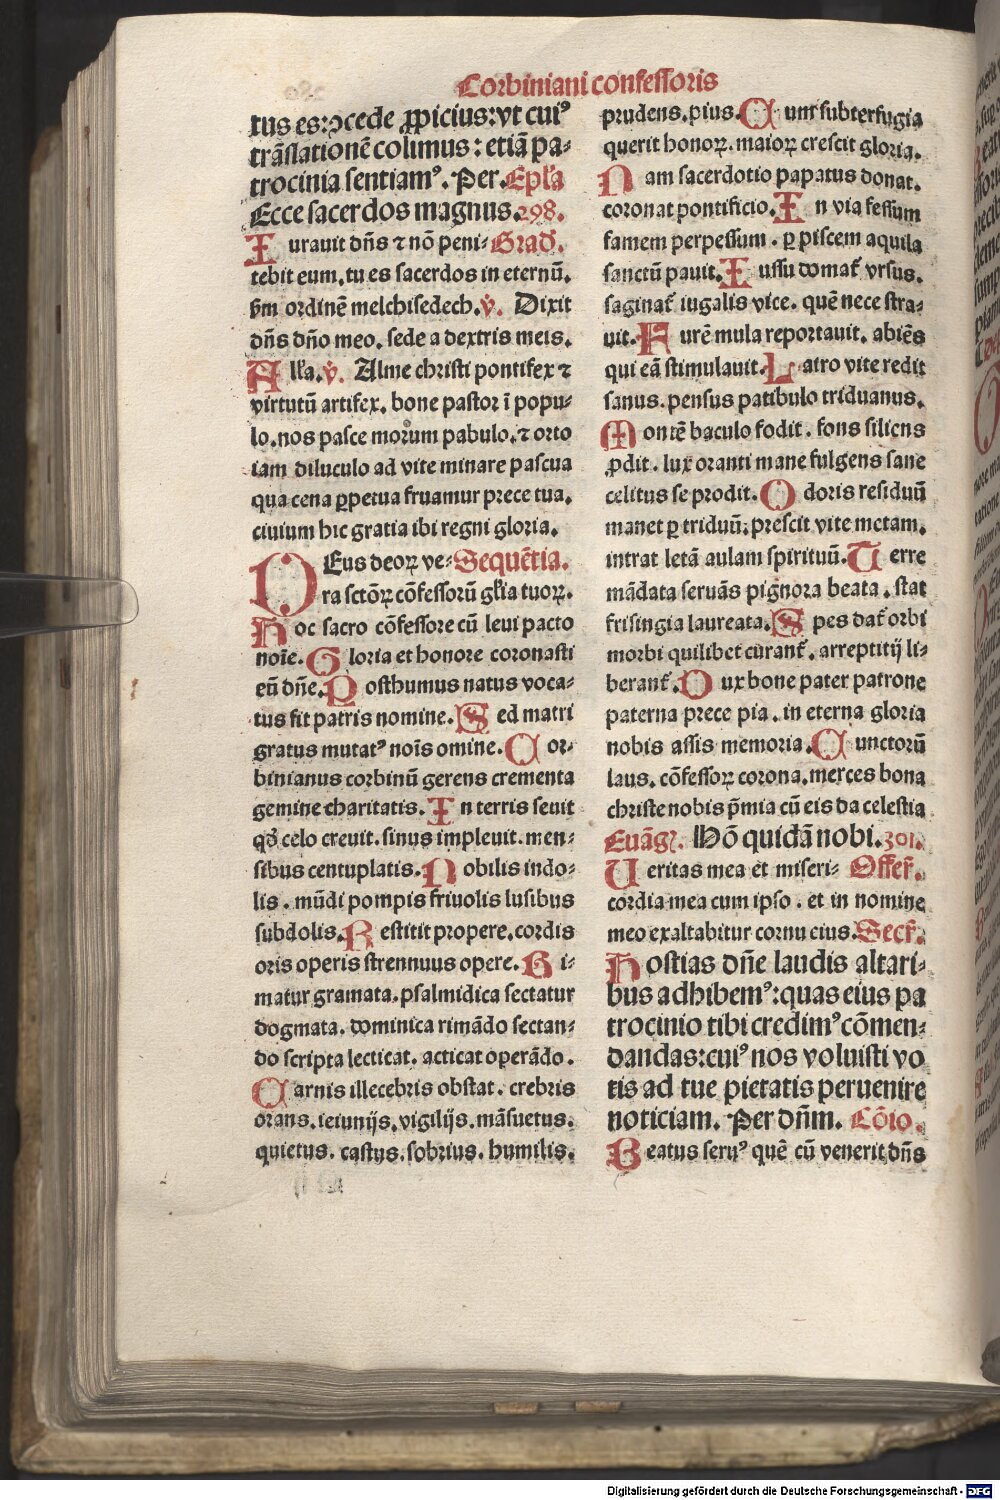 Corbiniani confessoris
tus es: ↄcede ꝓpicius: vt cuiꝰ
trãslationẽ colimus: etiã pa-
trocinia sentiamꝰ. Per. Epl'a
Ecce sacerdos magnus. 298.
Iurauit dñs ⁊ nõ peni- Grad'.
tebit eum. tu es sacerdos in eternũ.
ẜm ordinẽ melchisedech. ℣. Dixit
dñs dño meo. sede a dextris meis.
All'a. ℣. Alme christi pontifex ⁊
virtutũ artifex. bone pastor ĩ popu-
lo. nos pasce morum pabulo. ⁊ orto
iam diluculo ad vite minare pascua
qua cena ꝑpetua fruamur prece tua.
ciuium hic gratia ibi regni gloria.
DEus deoꝝ ve- Sequẽtia.
ra sctõꝝ cõfessorũ gl'ia tuoꝝ.
Hoc sacro cõfessore cũ leui pacto
noĩe. Gloria et honore coronasti
eũ dñe. Posthumus natus voca-
tus fit patris nomine. Sed matri
gratus mutatꝰ noĩs omine. Cor-
binianus corbinũ gerens crementa
gemine charitatis. In terris seuit
qđ celo creuit. sinus impleuit. men-
sibus centuplatis. Nobilis indo-
lis. mũdi pompis friuolis lusibus
subdolis. Restitit propere. cordis
oris operis strennuus opere. Ri-
matur gramata. psalmidica sectatur
dogmata. dominica rimãdo sectan-
do scripta lecticat. acticat operãdo.
Carnis illecebris obstat. crebris
orans. ieiunijs. vigilijs. mãsuetus.
quietus. castus. sobrius. humilis.
prudens. pius. Cum subterfugia
querit honoꝝ. maioꝝ crescit gloria.
Nam sacerdotio papatus donat.
coronat pontificio. In via fessum
famem perpessum. ꝑ piscem aquila
sanctũ pauit. Iussu domat' vrsus.
saginat' iugalis vice. quẽ nece stra-
uit. Furẽ mula reportauit. abiẽs
qui eã stimulauit. Latro vite redit
sanus. pensus patibulo triduanus.
Montẽ baculo fodit. fons siliens
ꝓdit. lux oranti mane fulgens sane
celitus se prodit. Odoris residuũ
manet ꝑ triduũ: prescit vite metam.
intrat letã aulam spirituũ. Terre
mãdata seruãs pignora beata. stat
frisingia laureata. Spes dat' orbi
morbi quilibet curant'. arreptitij li-
berant'. Dux bone pater patrone
paterna prece pia. in eterna gloria
nobis assis memoria. Cunctorũ
laus. cõfessoꝝ corona. merces bona
christe nobis p̃mia cũ eis da celestia
Euãg'. Hõ quidã nobi. 301.
Ueritas mea et miseri- Offer'.
cordia mea cum ipso. et in nomine
meo exaltabitur cornu eius. Secr'.
Hostias dñe laudis altari-
bus adhibemꝰ: quas eius pa
trocinio tibi credimꝰ cõmen-
dandas: cuiꝰ nos voluisti vo
tis ad tue pietatis peruenire
noticiam. Per dñm. Cõio.
Beatus seruꝰ quẽ cũ venerit dñs
Digitalisierung gefördert durch die Deutsche Forschungsgemeinschaft - DFG